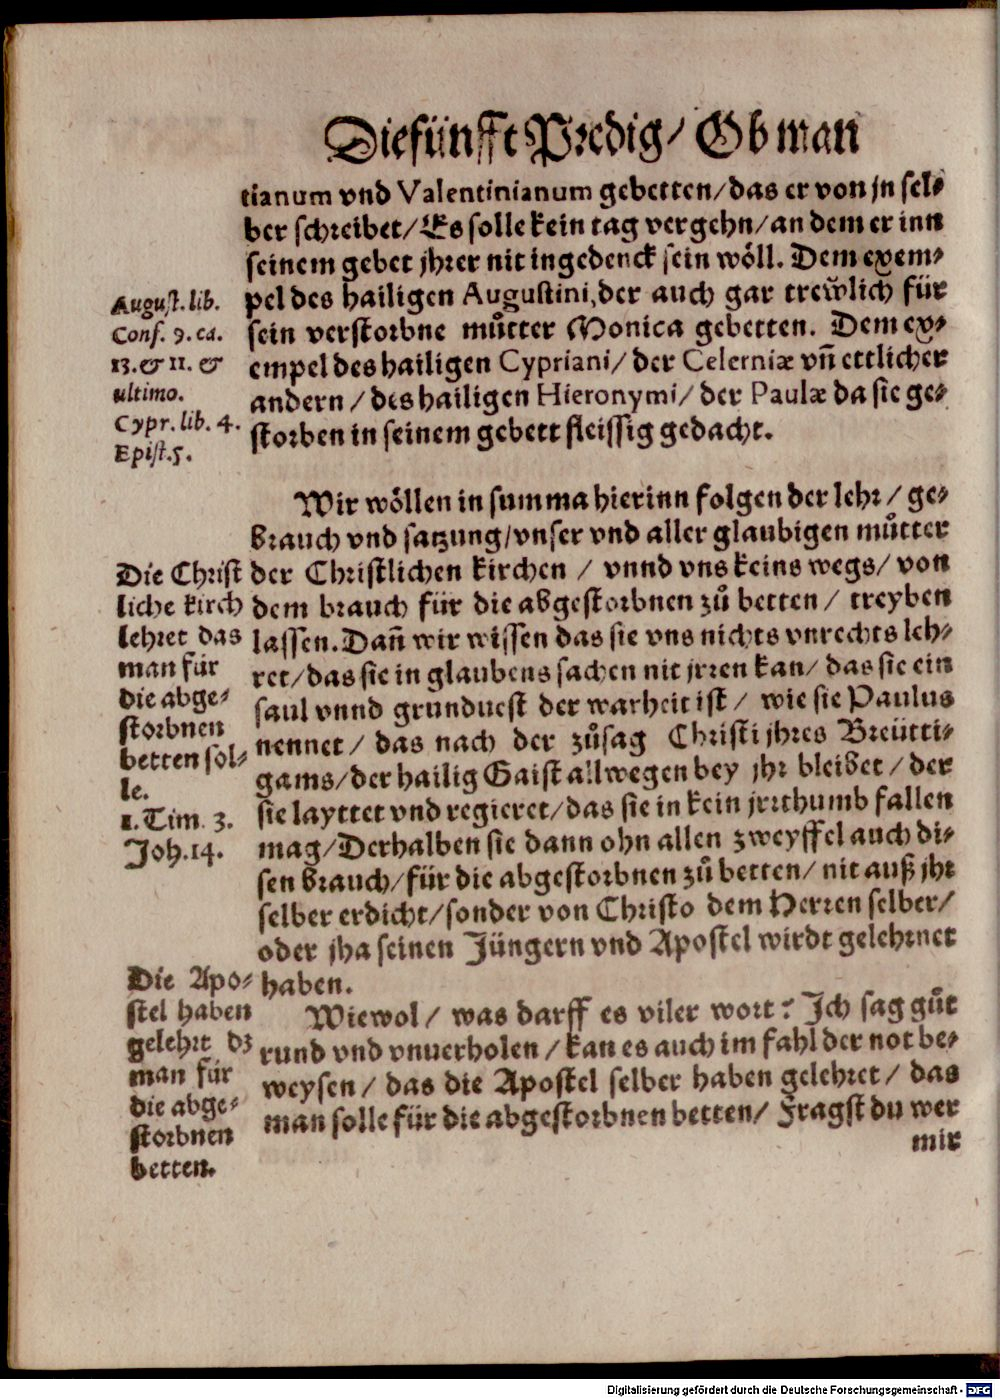 Die fünfft Predig/ Ob man
tianum vnd Valentinianum gebetten/das er von jn sel⸗
ber schreibet/Es solle kein tag vergehn/an dem er inn
seinem gebet jhrer nit ingedenck sein wöll. Dem exem⸗
pel des hailigen Augustini, der auch gar trewlich für
sein verstorbne můtter Monica gebetten. Dem ex⸗
empel des hailigen Cypriani/ der Celerniæ vñ ettlicher
andern/ des hailigen Hieronymi/ der Paulæ da sie ge⸗
storben in seinem gebett fleissig gedacht.
August. lib.
Conf. 9. ca.
13. & 11. &
ultimo.
Cypr. lib. 4.
Epist. 5.
Wir wöllen in summa hierinn folgen der lehr/ ge⸗
brauch vnd satzung/vnser vnd aller glaubigen můtter
der Christlichen kirchen / vnnd vns keins wegs/ von
dem brauch für die abgestorbnen zů betten/ treyben
lassen. Dañ wir wissen das sie vns nichts vnrechts leh⸗
ret/das sie in glaubens sachen nit jrren kan/ das sie ein
saul vnnd grunduest der warheit ist/ wie sie Paulus
nennet/ das nach der zůsag Christi jhres Breütti⸗
gams/der hailig Gaist allwegen bey jhr bleibet/der
sie layttet vnd regieret/das sie in kein jrrthumb fallen
mag/Derhalben sie dann ohn allen zweyffel auch di⸗
sen brauch/für die abgestorbnen zů betten/ nit auß jhr
selber erdicht/sonder von Christo dem Herren selber/
oder jha seinen Jüngern vnd Apostel wirdt gelehrnet
haben.
Die Christ
liche kirch
lehret das
man für
die abge⸗
storbnen
betten sol⸗
le.
1. Tim. 3.
Joh. 14.
Wiewol/ was darff es viler wort? Ich sag gůt
rund vnd vnuerholen/kan es auch im fahl der not be⸗
weysen/ das die Apostel selber haben gelehret/ das
man solle für die abgestorbnen betten/ Fragst du wer
Die Apo⸗
stel haben
gelehrt dz
man für
die abge⸗
storbnen
betten.
mir
Digitalisierung gefördert durch die Deutsche Forschungsgemeinschaft - DFG